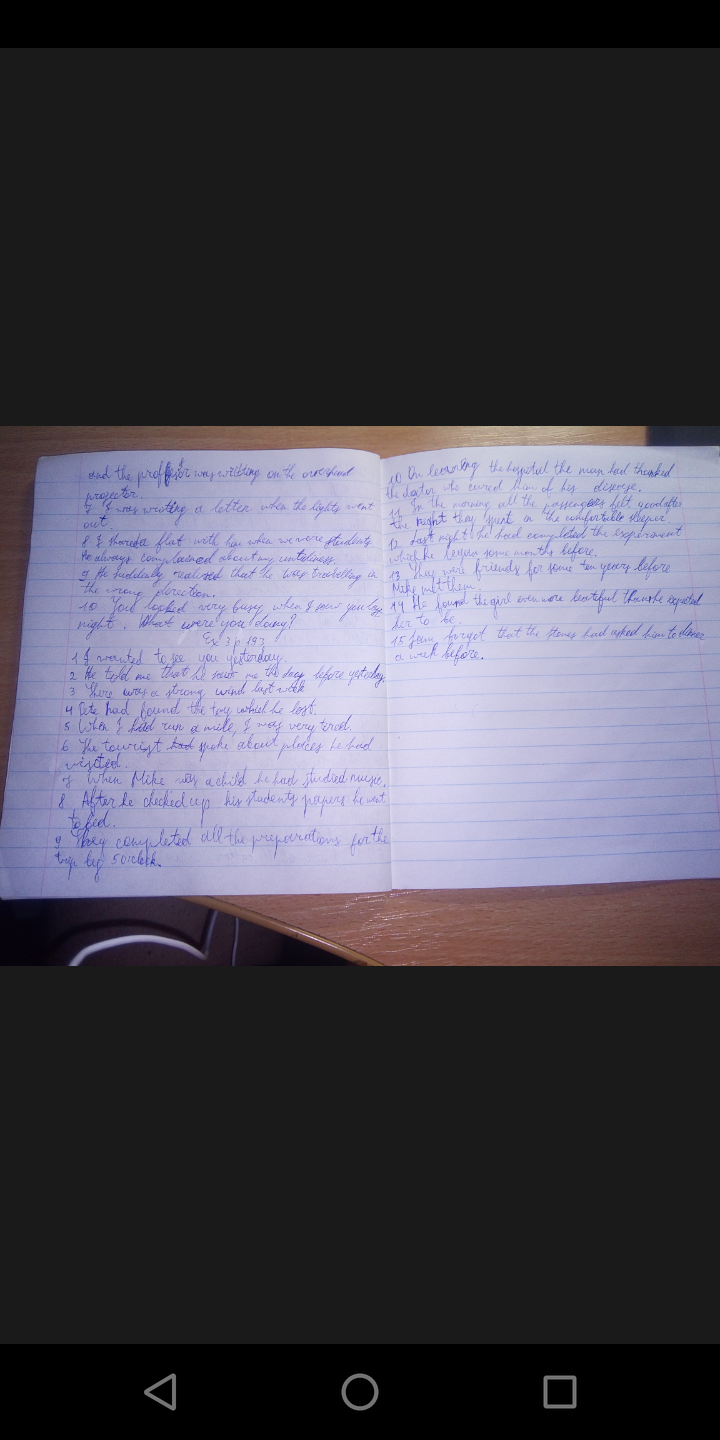 and the professor was writing on the overhead
projector.
7 I was writing a letter when the lights went
out.
8 I shared a flat with him when we were students
He always complained about my untidiness.
9 He suddenly realized that he was travelling in
the wrong direction.
10 You looked very busy when I saw you last
night. What were you doing?
Ex 3 p 193
1 I wanted to see you yesterday.
2 He told me that he saw me the day before yesterday.
3 There was a strong wind last week
4 Pete had found the toy which he lost.
5 When I had run a mile, I was very tired.
6 The tourist had spoke about places he had
visited.
7 When Mike was a child he had studied music.
8 After he checked up his students papers he went
to bed.
9 They completed all the preparations for the
trip by 5 o'clock.
10 On leaving the hospital the man had thanked
the doctor who cured him of his disease.
11 In the morning all the passengers felt good after
the night they spent in the comfortable sleeper
12 Last night he had completed the experiment
which he began some months before.
13 They were friends for some ten years before
Mike met them.
14 He found the girl even more beautiful than he expected
her to be.
15 forgot that the had asked him to dinner
a week before.